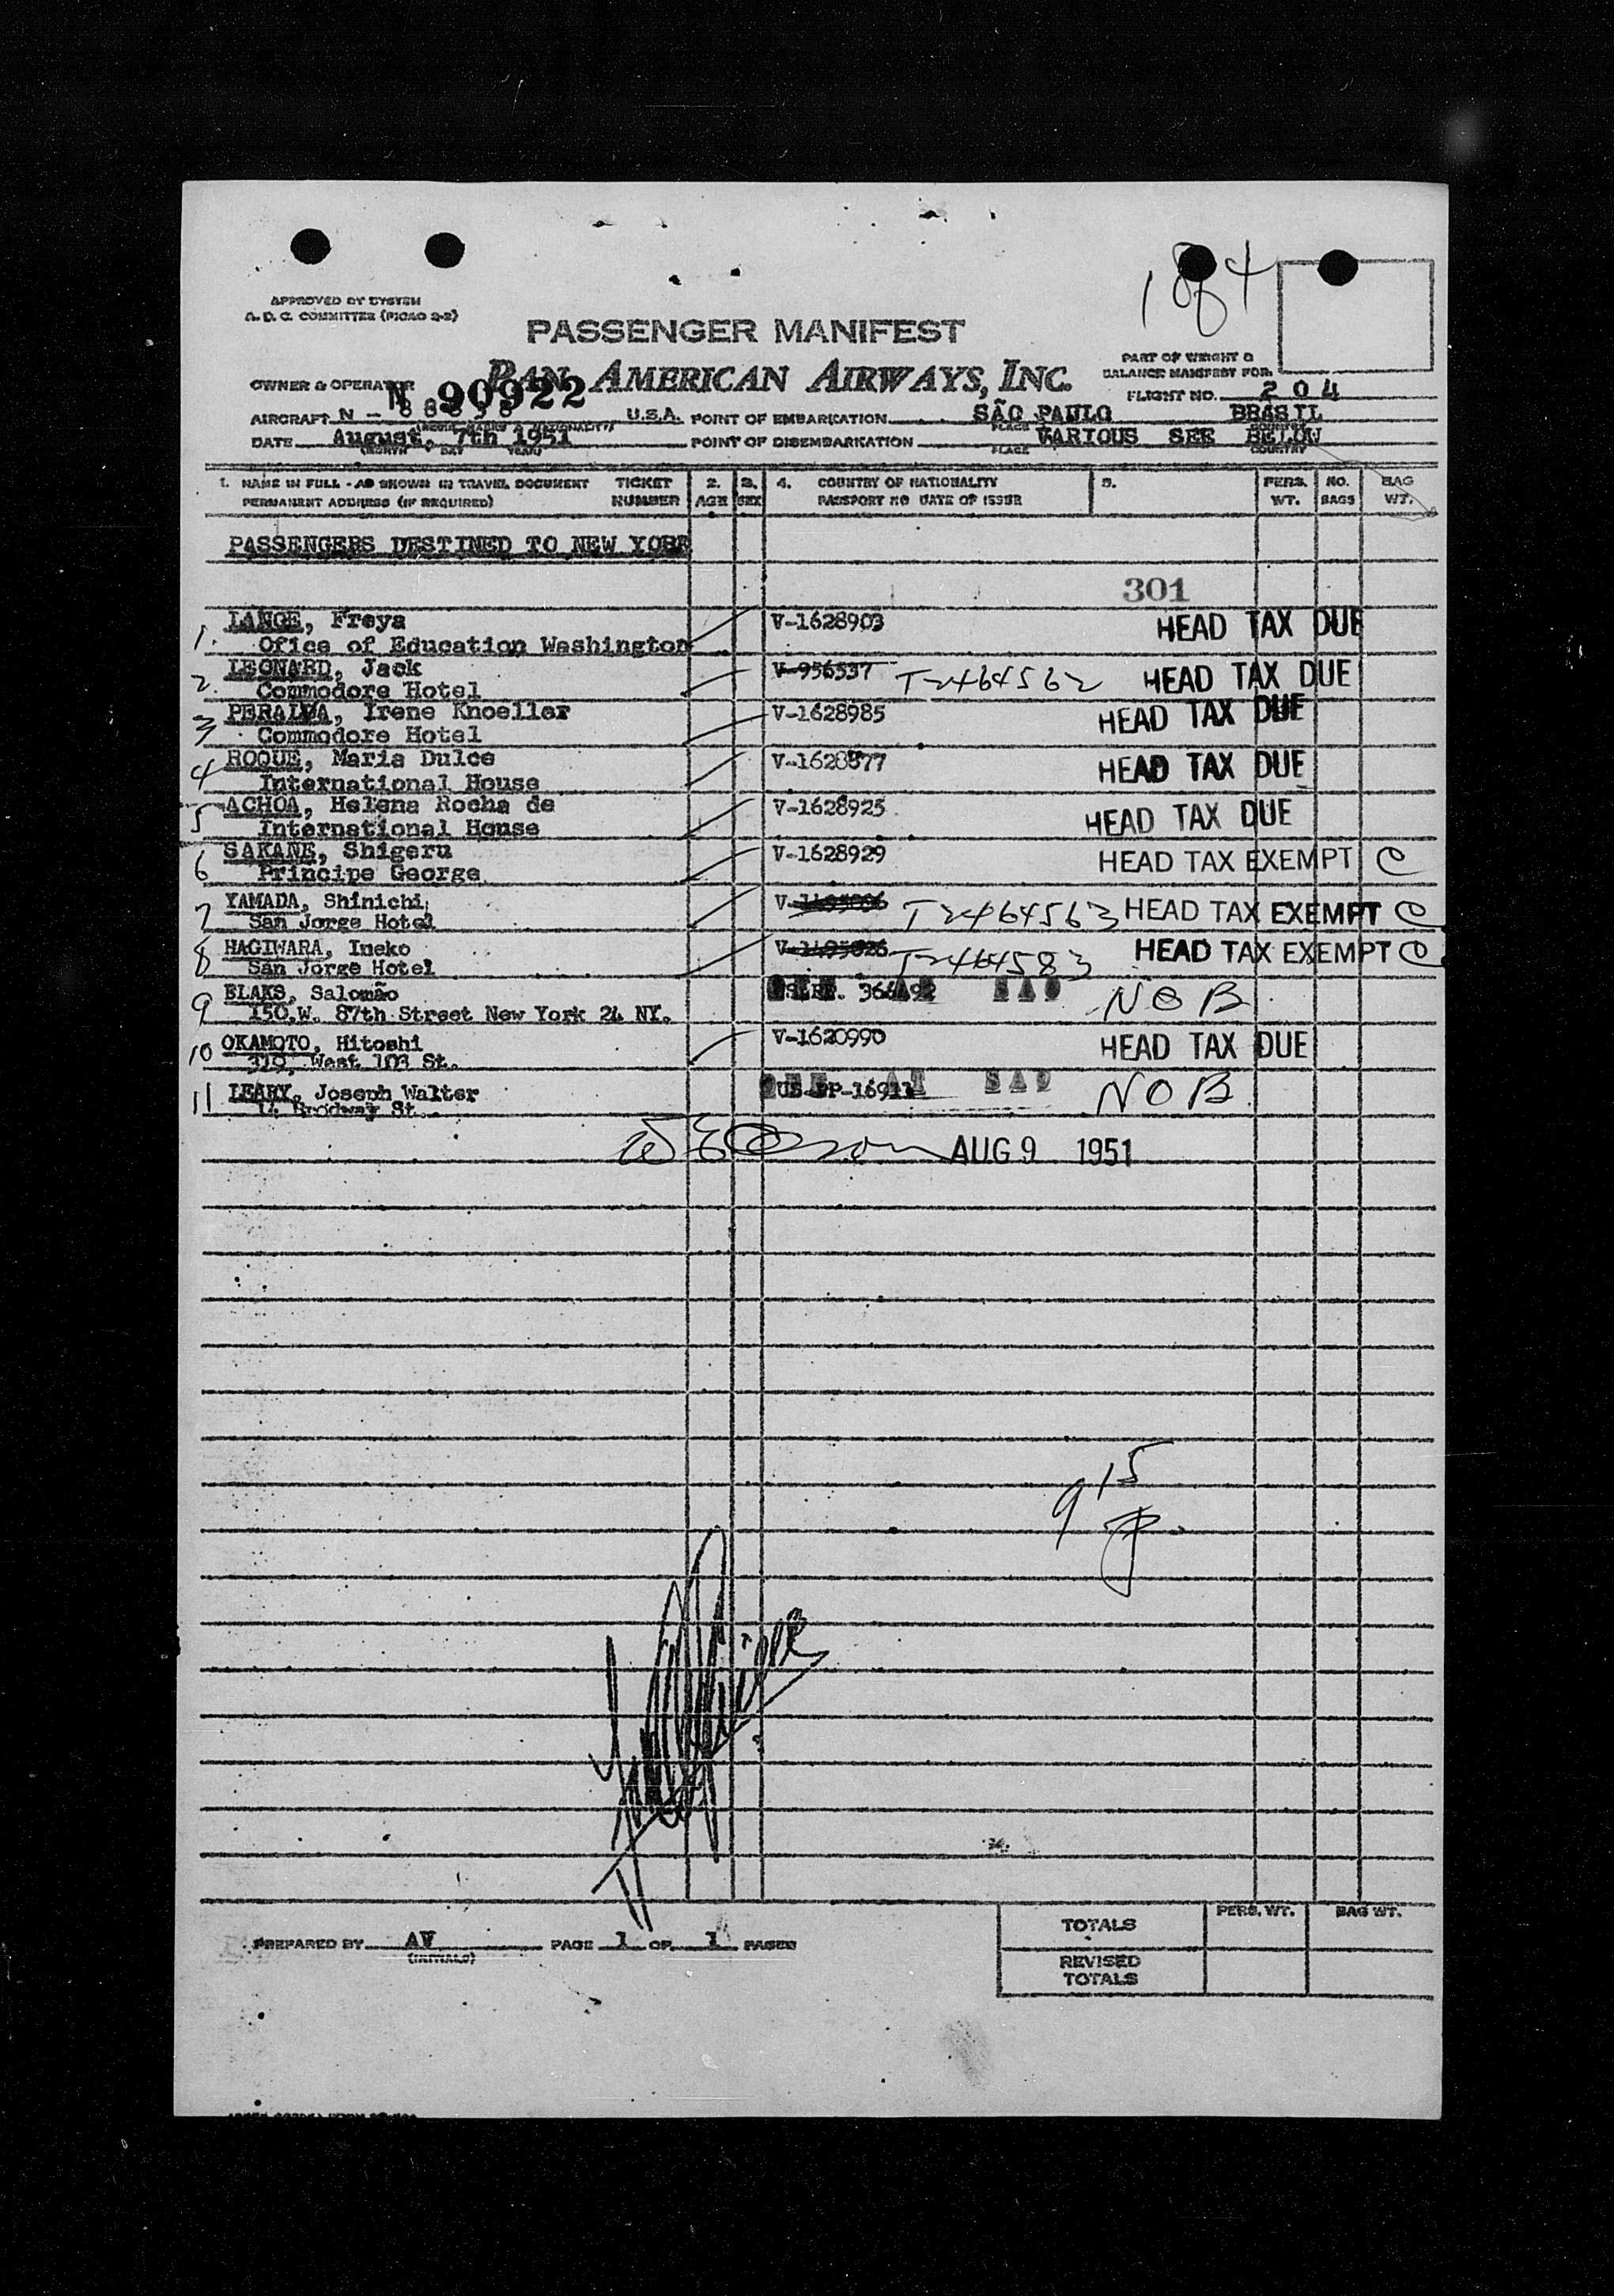 APPROVED BY SYSTEM
A.D.C. COMMITTEE (PICAO 2-2)
PASSENGER MANIFEST
PAN AMERICAN AIRWAYS, INC.
PART OF WEIGHT &
BALANCE MANIFEST FOR:
OWNER & OPERATOR
N 90922
FLIGHT NO. 204
AIRCRAFT N - U.S.A. POINT OF EMBARKATION SÃO PAULO BRASIL
PLACE COUNTRY
DATE August, 7th 1951 POINT OF DISEMBARKATION VARIOUS SEE BELOW
(MONTH DAY YEAR) PLACE COUNTRY
1. NAME IN FULL - AS SHOWN IN TRAVEL DOCUMENT TICKET 2. 3. 4. COUNTRY OF NATIONALITY 5. PERS. NO. BAG
PERMANENT ADDRESS (IF REQUIRED) NUMBER AGE SEX PASSPORT NO DATE OF ISSUE WT. BAGS WT.
PASSENGERS DESTINED TO NEW YORK
301
1. LANGE, Freya V-1628903 HEAD TAX DUE
Ofice of Education Washington
2. LEONARD, Jack V-956537 T-2464562 HEAD TAX DUE
Commodore Hotel
3 PERALVA, Irene Knoeller V-1628985 HEAD TAX DUE
Commodore Hotel
4 ROQUE, Maria Dulce V-1628877 HEAD TAX DUE
International House
5 ACHOA, Helena Rocha de V-1628925 HEAD TAX DUE
International House
6 SAKANE, Shigeru V-1628929 HEAD TAX EXEMPT C
Principe George
7 YAMADA, Shinichi V- T2464563 HEAD TAX EXEMPT C
San Jorge Hotel
8 HAGIWARA, Ineko V- T-2464583 HEAD TAX EXEMPT C
San Jorge Hotel
9 BLAKS, Salomão NOB
150.W. 87th Street New York 24 NY.
10 OKAMOTO, Hitoshi V-1620990 HEAD TAX DUE
319, West 103 St.
11 LEARY, Joseph Walter NOB
14 Brodway St.
AUG 9 1951
9 15
PREPARED BY AV PAGE 1 OF 1 PAGES
(INITIALS)
PERS. WT. BAG WT.
TOTALS
REVISED
TOTALS